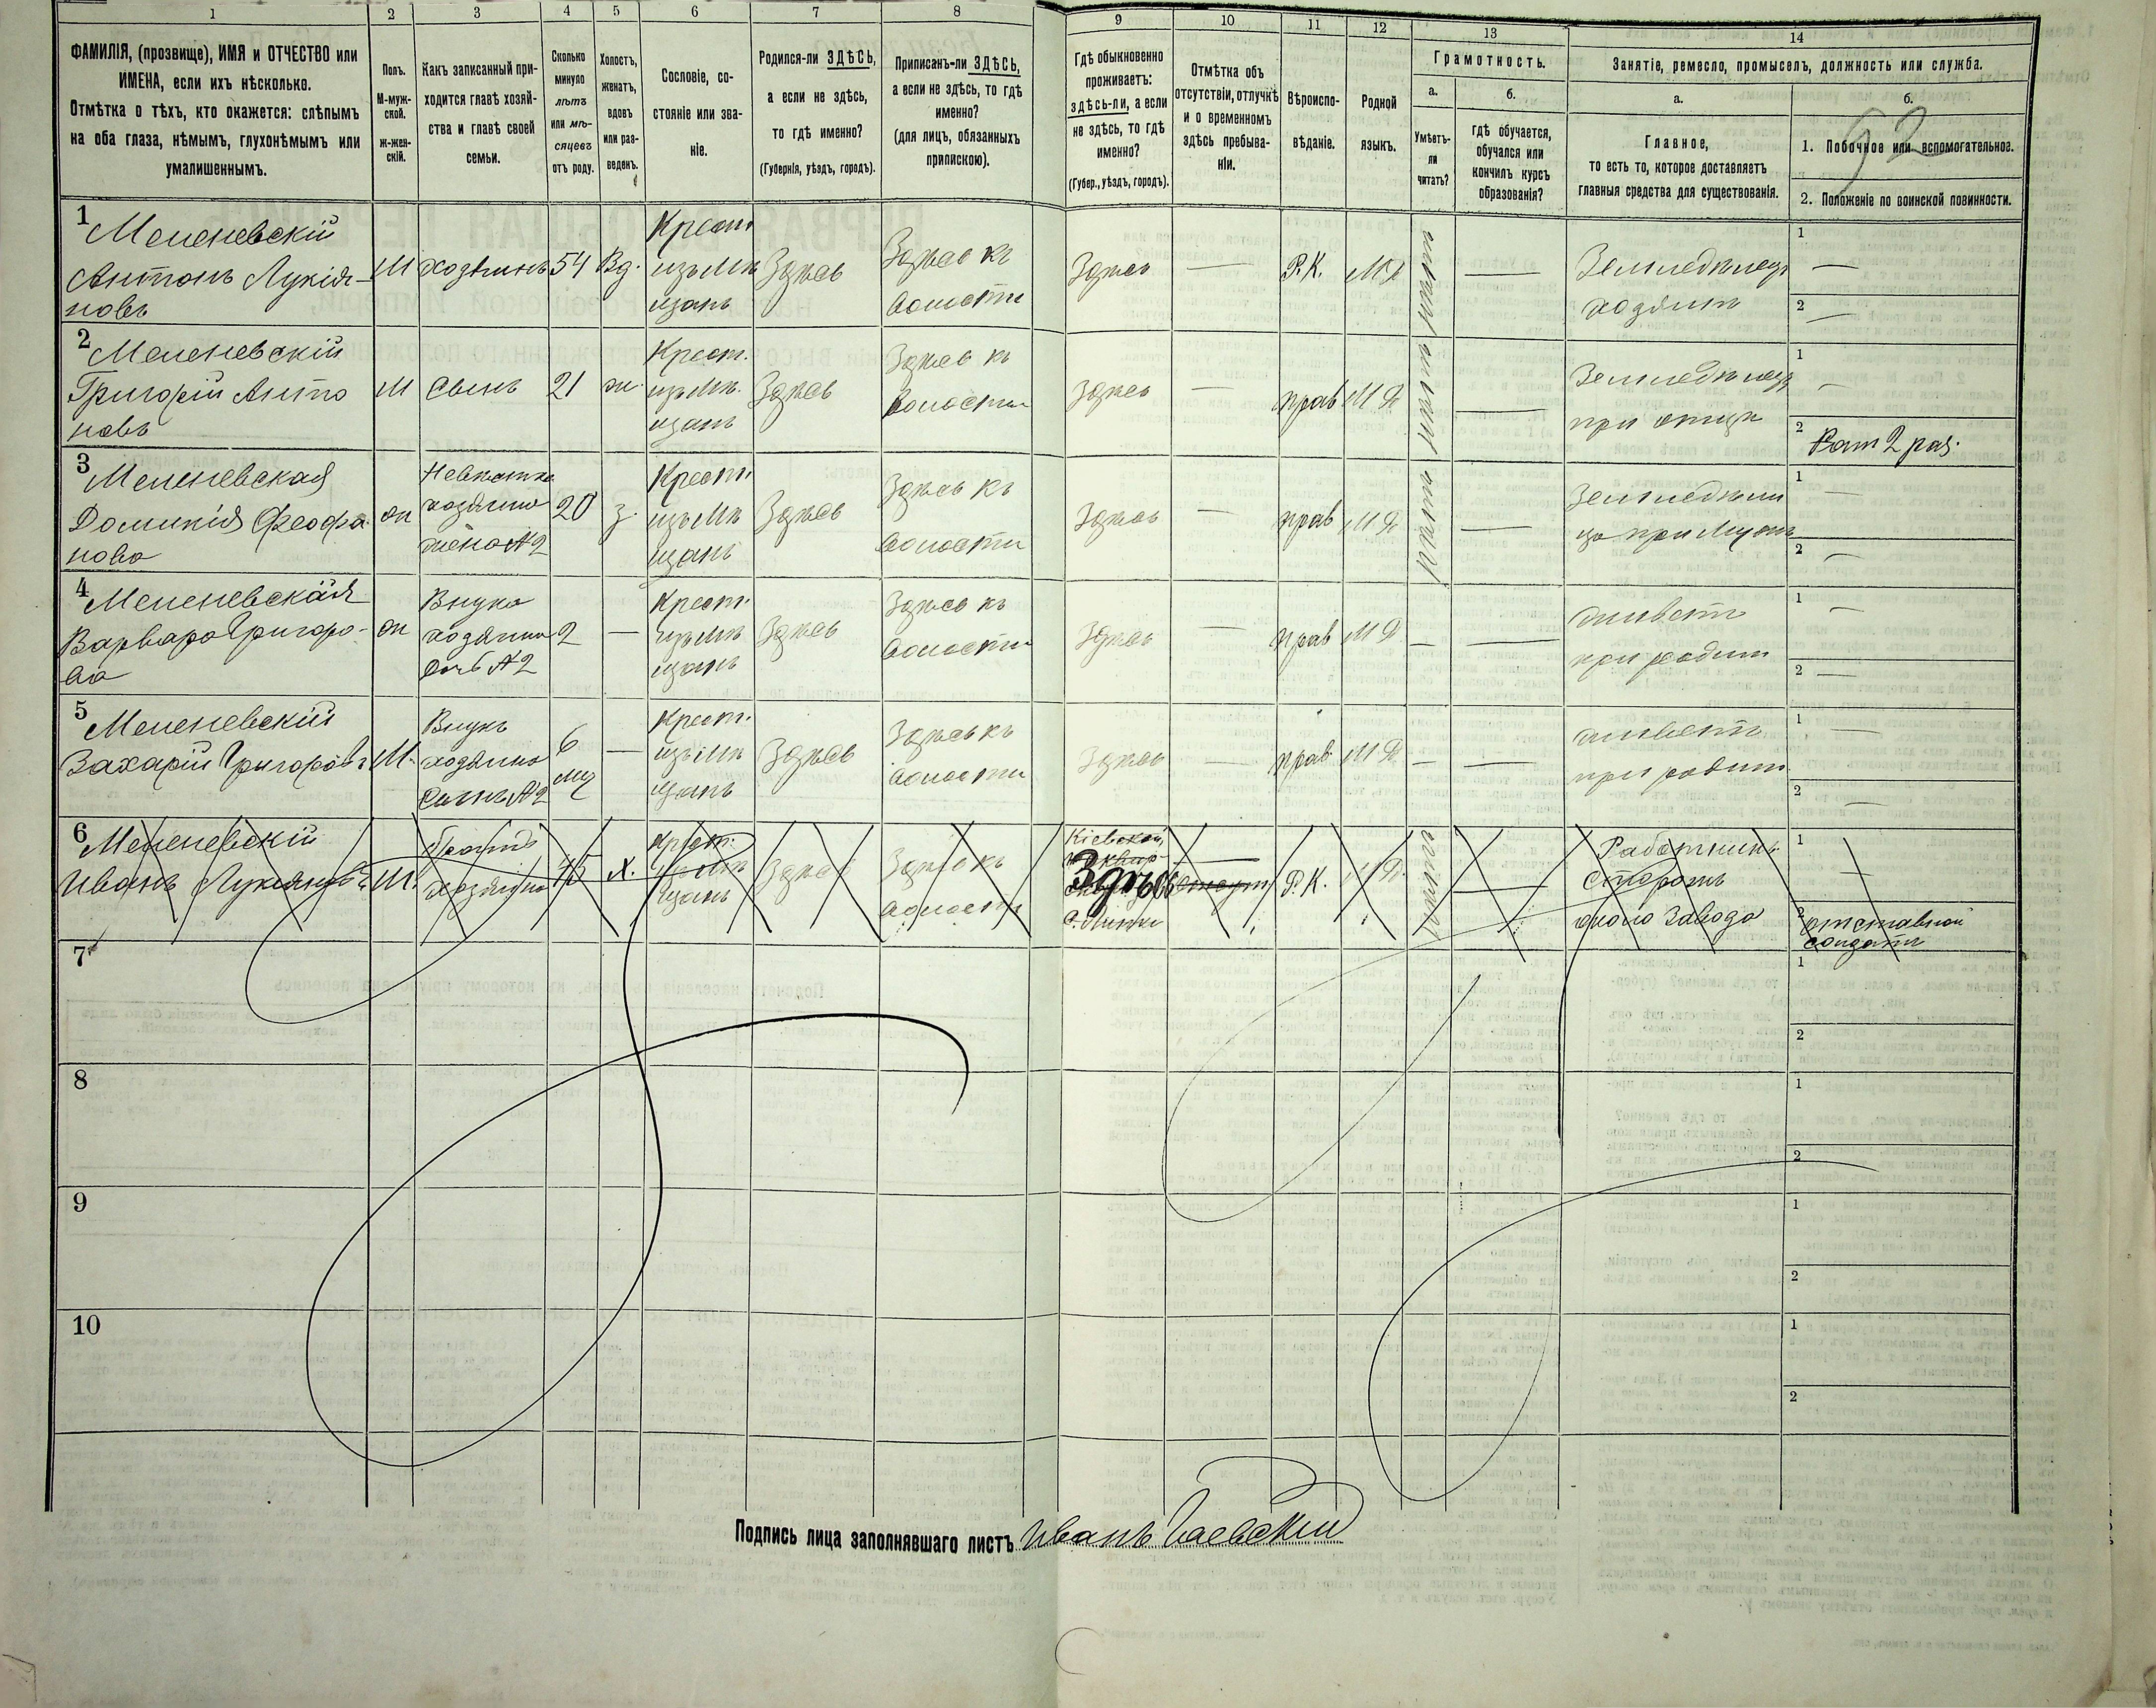 1 2 3 4 5 6 7 8 9 10 11 12 13 14
ФАМИЛІЯ, (прозвище), ИМЯ и ОТЧЕСТВО или
ИМЕНА, если ихъ нѣсколько.
Отмѣтка о тѣхъ, кто окажется: слѣпымъ
на оба глаза, нѣмымъ, глухонѣмымъ или
умалишеннымъ.
Полъ.
М-муж-
ской.
ж-жен-
скій.
Какъ записанный при-
ходится главѣ хозяй-
ства и главѣ своей
семьи.
Сколько
минуло
лѣтъ
или мѣ-
сяцевъ
отъ роду.
Холостъ,
женатъ,
вдовъ
или раз-
веденъ.
Сословіе, со-
стояніе или зва-
ніе.
Родился-ли ЗДѢСЬ,
а если не здѣсь,
то гдѣ именно?
(Губернія, уѣздъ, городъ).
Приписанъ-ли ЗДѢСЬ,
а если не здѣсь, то гдѣ
именно?
(для лицъ, обязанныхъ
припискою).
Гдѣ обыкновенно
проживаетъ:
здѣсь-ли, а если
не здѣсь, то гдѣ
именно?
(Губер., уѣздъ, городъ).
Отмѣтка объ
отсутствіи, отлучкѣ
и о временномъ
здѣсь пребыва-
ніи.
Вѣроиспо-
вѣданіе.
Родной
языкъ.
Грамотность.
а.
Умѣетъ-
ли
читать?
б.
гдѣ обучается,
обучался или
кончилъ курсъ
образованія?
Занятіе, ремесло, промыселъ, должность или служба.
а.
Главное,
то есть то, которое доставляетъ
главныя средства для существованія.
б.
92
1. Побочное или вспомогательное.
2. Положеніе по воинской повинности.
1
Антонъ Лукія-
новъ
М
хозяинъ
54
Вд.
Крест.
изъ мѣ
щанъ
Здѣсь
Здѣсь къ
волости
Здѣсь
—
Р.К.
МР
—
Земледѣлецъ
хозяинъ
1 —
2 —
2
Григорій Анто
новъ
М
сынъ
21
ж.
Крест.
изъ мѣ.
щанъ
Здѣсь
Здѣсь къ
волости
Здѣсь
—
прав
МР
—
Земледѣлецъ
при отцѣ
1 —
2 Рат 2 раз.
3
Домникія Феофа-
нова
жн
Невѣстка
хозяина
жена №2
20
з.
Крест.
изъ мѣ
щанъ
Здѣсь
Здѣсь къ
волости
Здѣсь
—
прав
МР
—
Земледѣли
ца при мужѣ
1 —
2 —
4
Варвара Григоро-
ва
жн
Внука
хозяина
дочь №2
2
—
Крест.
изъ мѣ
щанъ
Здѣсь
Здѣсь къ
волости
Здѣсь
—
прав
МР
—
—
живетъ
при родит
1 —
2 —
5
Захарій Григоровъ
М.
Внукъ
хозяина
сынъ №2
6
мц
—
Крест.
изъ мѣ
щанъ
Здѣсь
Здѣсь къ
волости
Здѣсь
—
прав.
МР
—
—
живетъ
при родит
1 —
2 —
6
Иванъ
М.
Братъ
хозяина
45
х.
Крест.
изъ мѣ
щанъ
Здѣсь
Здѣсь къ
волости
Кіевской
Здѣсь
—
Р.К.
МР.
—
Работникъ
Сторожъ
около завода
1 —
2 отставной
солдатъ
7 1
2
8 1
2
9 1
2
10 1
2
Подпись лица заполнявшаго листъ Иванъ Гаевскій